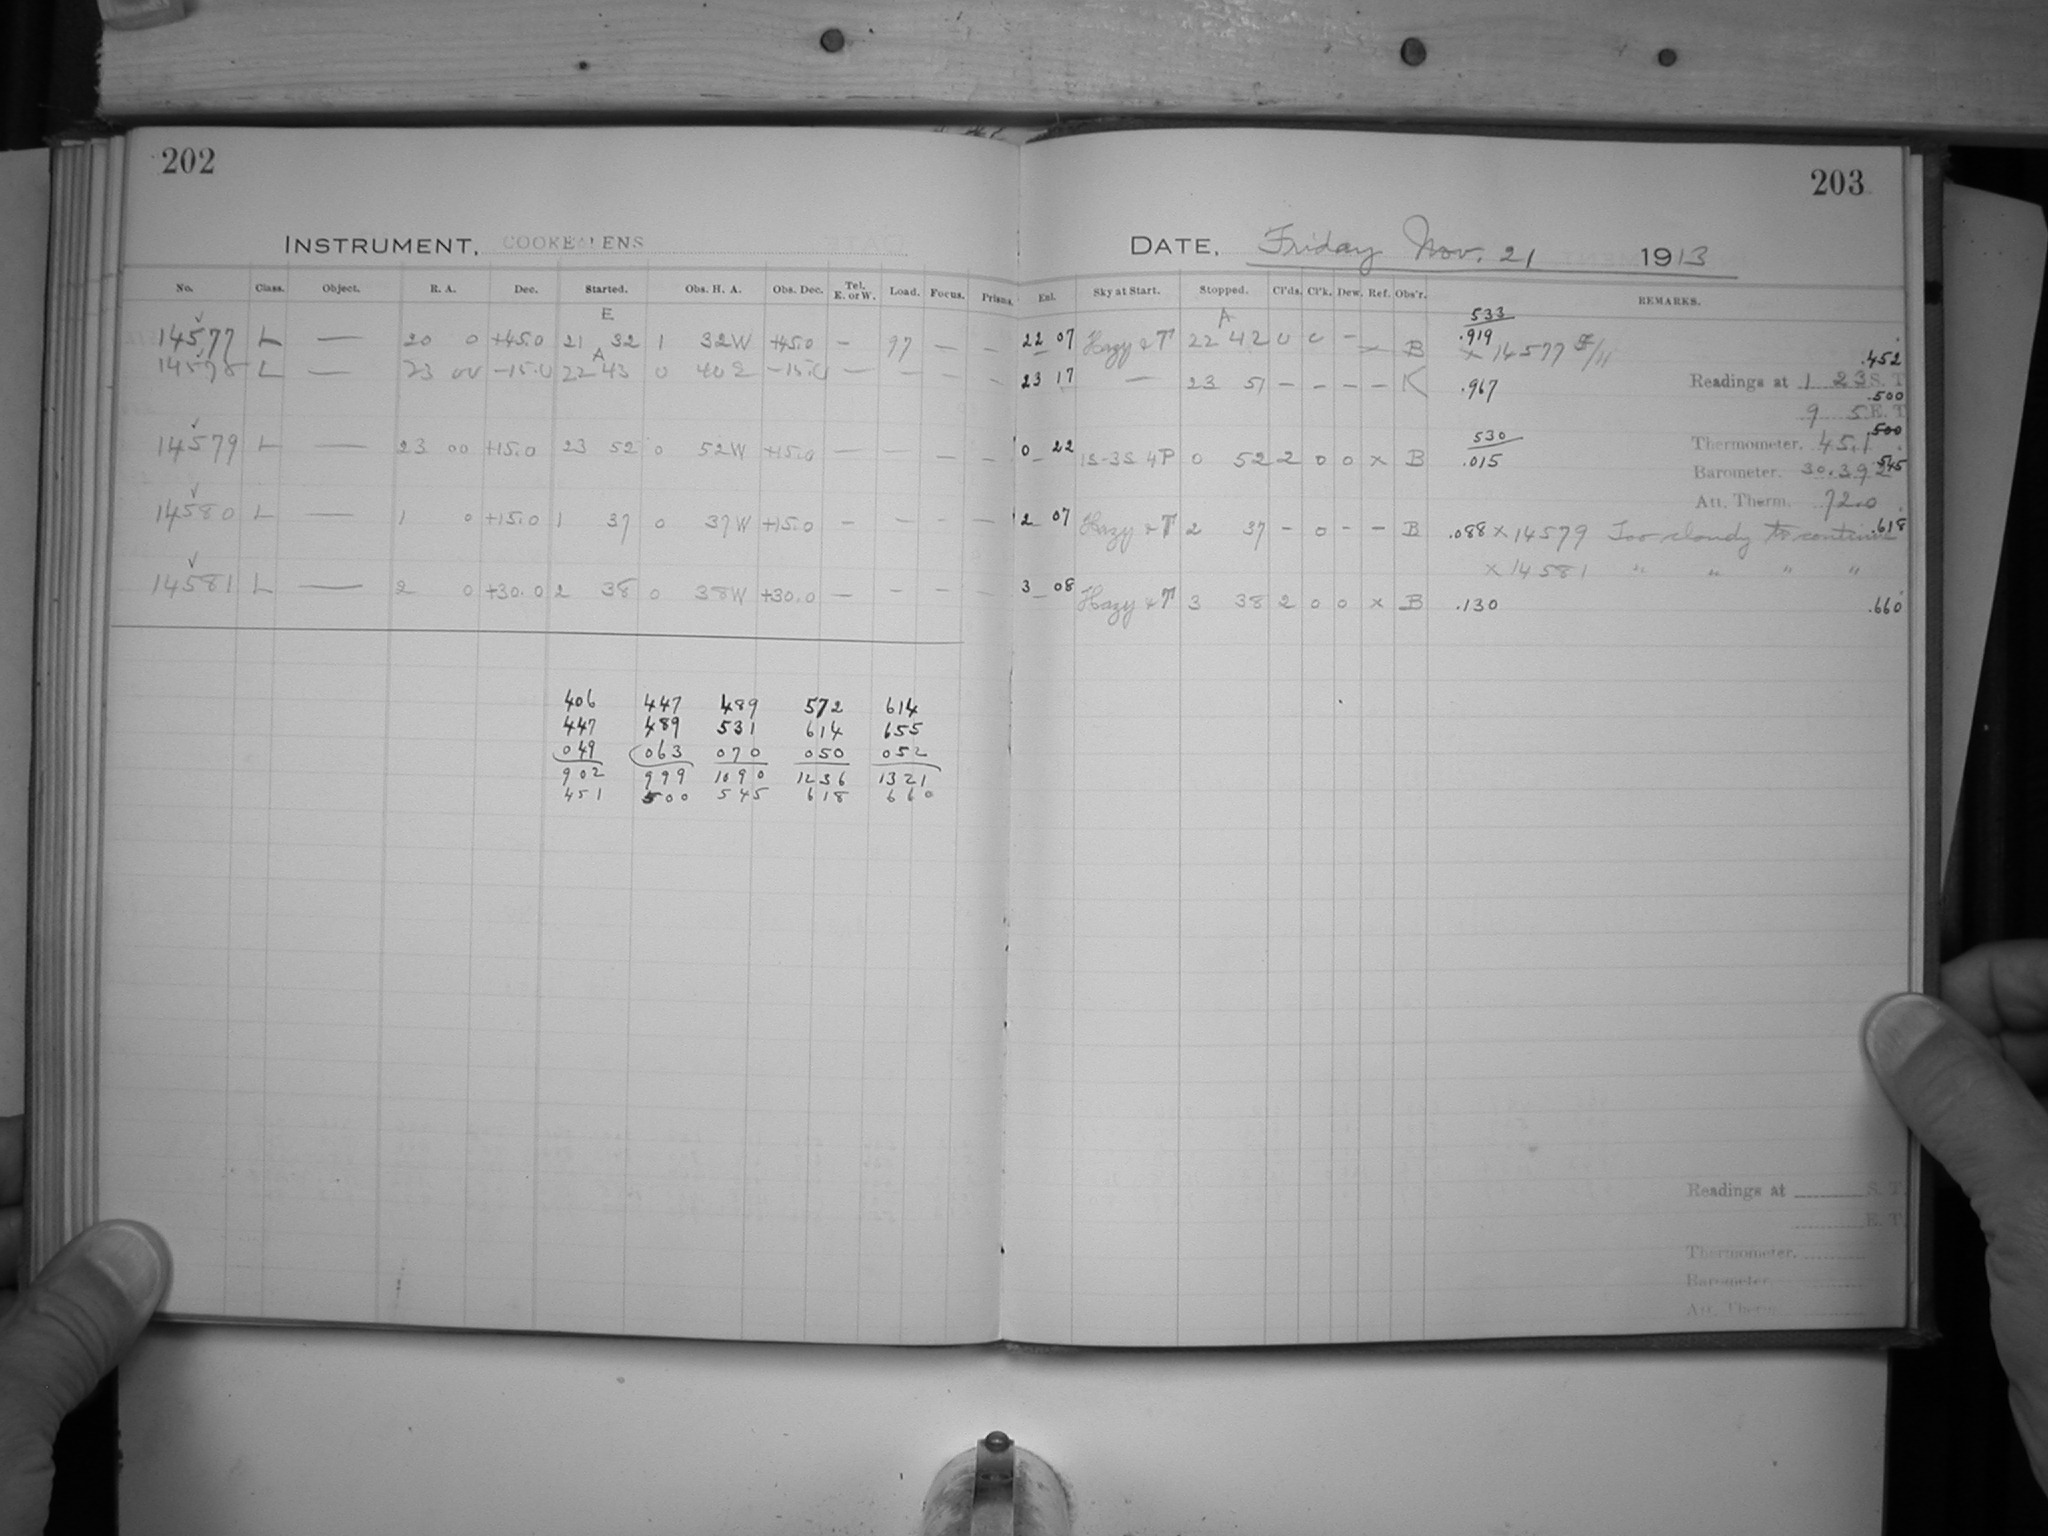 202
INSTRUMENT, COOKE LENS
No. Class. Object. R. A. Dec. Started. Obs. H. A. Obs. Dec. Tel. E. or W. Load. Focus. Prisms.
E
14577 L — 20 0 +45.0 21 32 1 32W +45.0 — 97 — —
A
14578 L — 23 00 -15.0 22 43 0 40E -15.0 — — — —
14579 L — 23 00 +15.0 23 52 0 52W +15.0 — — — —
14580 L — 1 0 +15.0 1 37 0 37W +15.0 — — — —
14581 L — 2 0 +30.0 2 38 0 38W +30.0 — — — —
406 447 489 572 614
447 489 531 614 655
049 063 070 050 052
902 999 1090 1236 1321
451 500 545 618 660
203
DATE, Friday Nov. 21 1913
Exl. Sky at Start. Stopped. Cl'ds. Cl'k. Dew. Ref. Obs'r. REMARKS.
A 533
22 07 Hazy & T 22 42 0 0 — x B .919
x 14577 F/11 .452
23 17 — 23 51 — — — — K .967
Readings at 1 23 S. T.
.500
9 5 E. T.
530 500
0 22 1S-3S 4P 0 52 2 0 0 x B .015
Thermometer. 45.1
Barometer. 30.392 .545
Att. Therm. 72.0
2 07 Hazy & T 2 37 — 0 — — B .088 x 14579 Too cloudy to continue .618
x 14581 " " " "
3 08 Hazy & T 3 38 2 0 0 x B .130 .660
Readings at S. T.
E. T.
Thermometer.
Barometer.
Att. Therm.